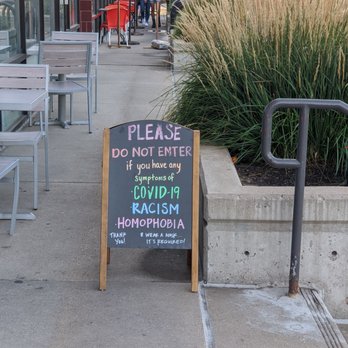 PLEASE
DO NOT ENTER
if you have any
symptoms of
· COVID-19
· RACISM
· HOMOPHOBIA
THANK YOU!
* WEAR A MASK
IT'S REQUIRED!